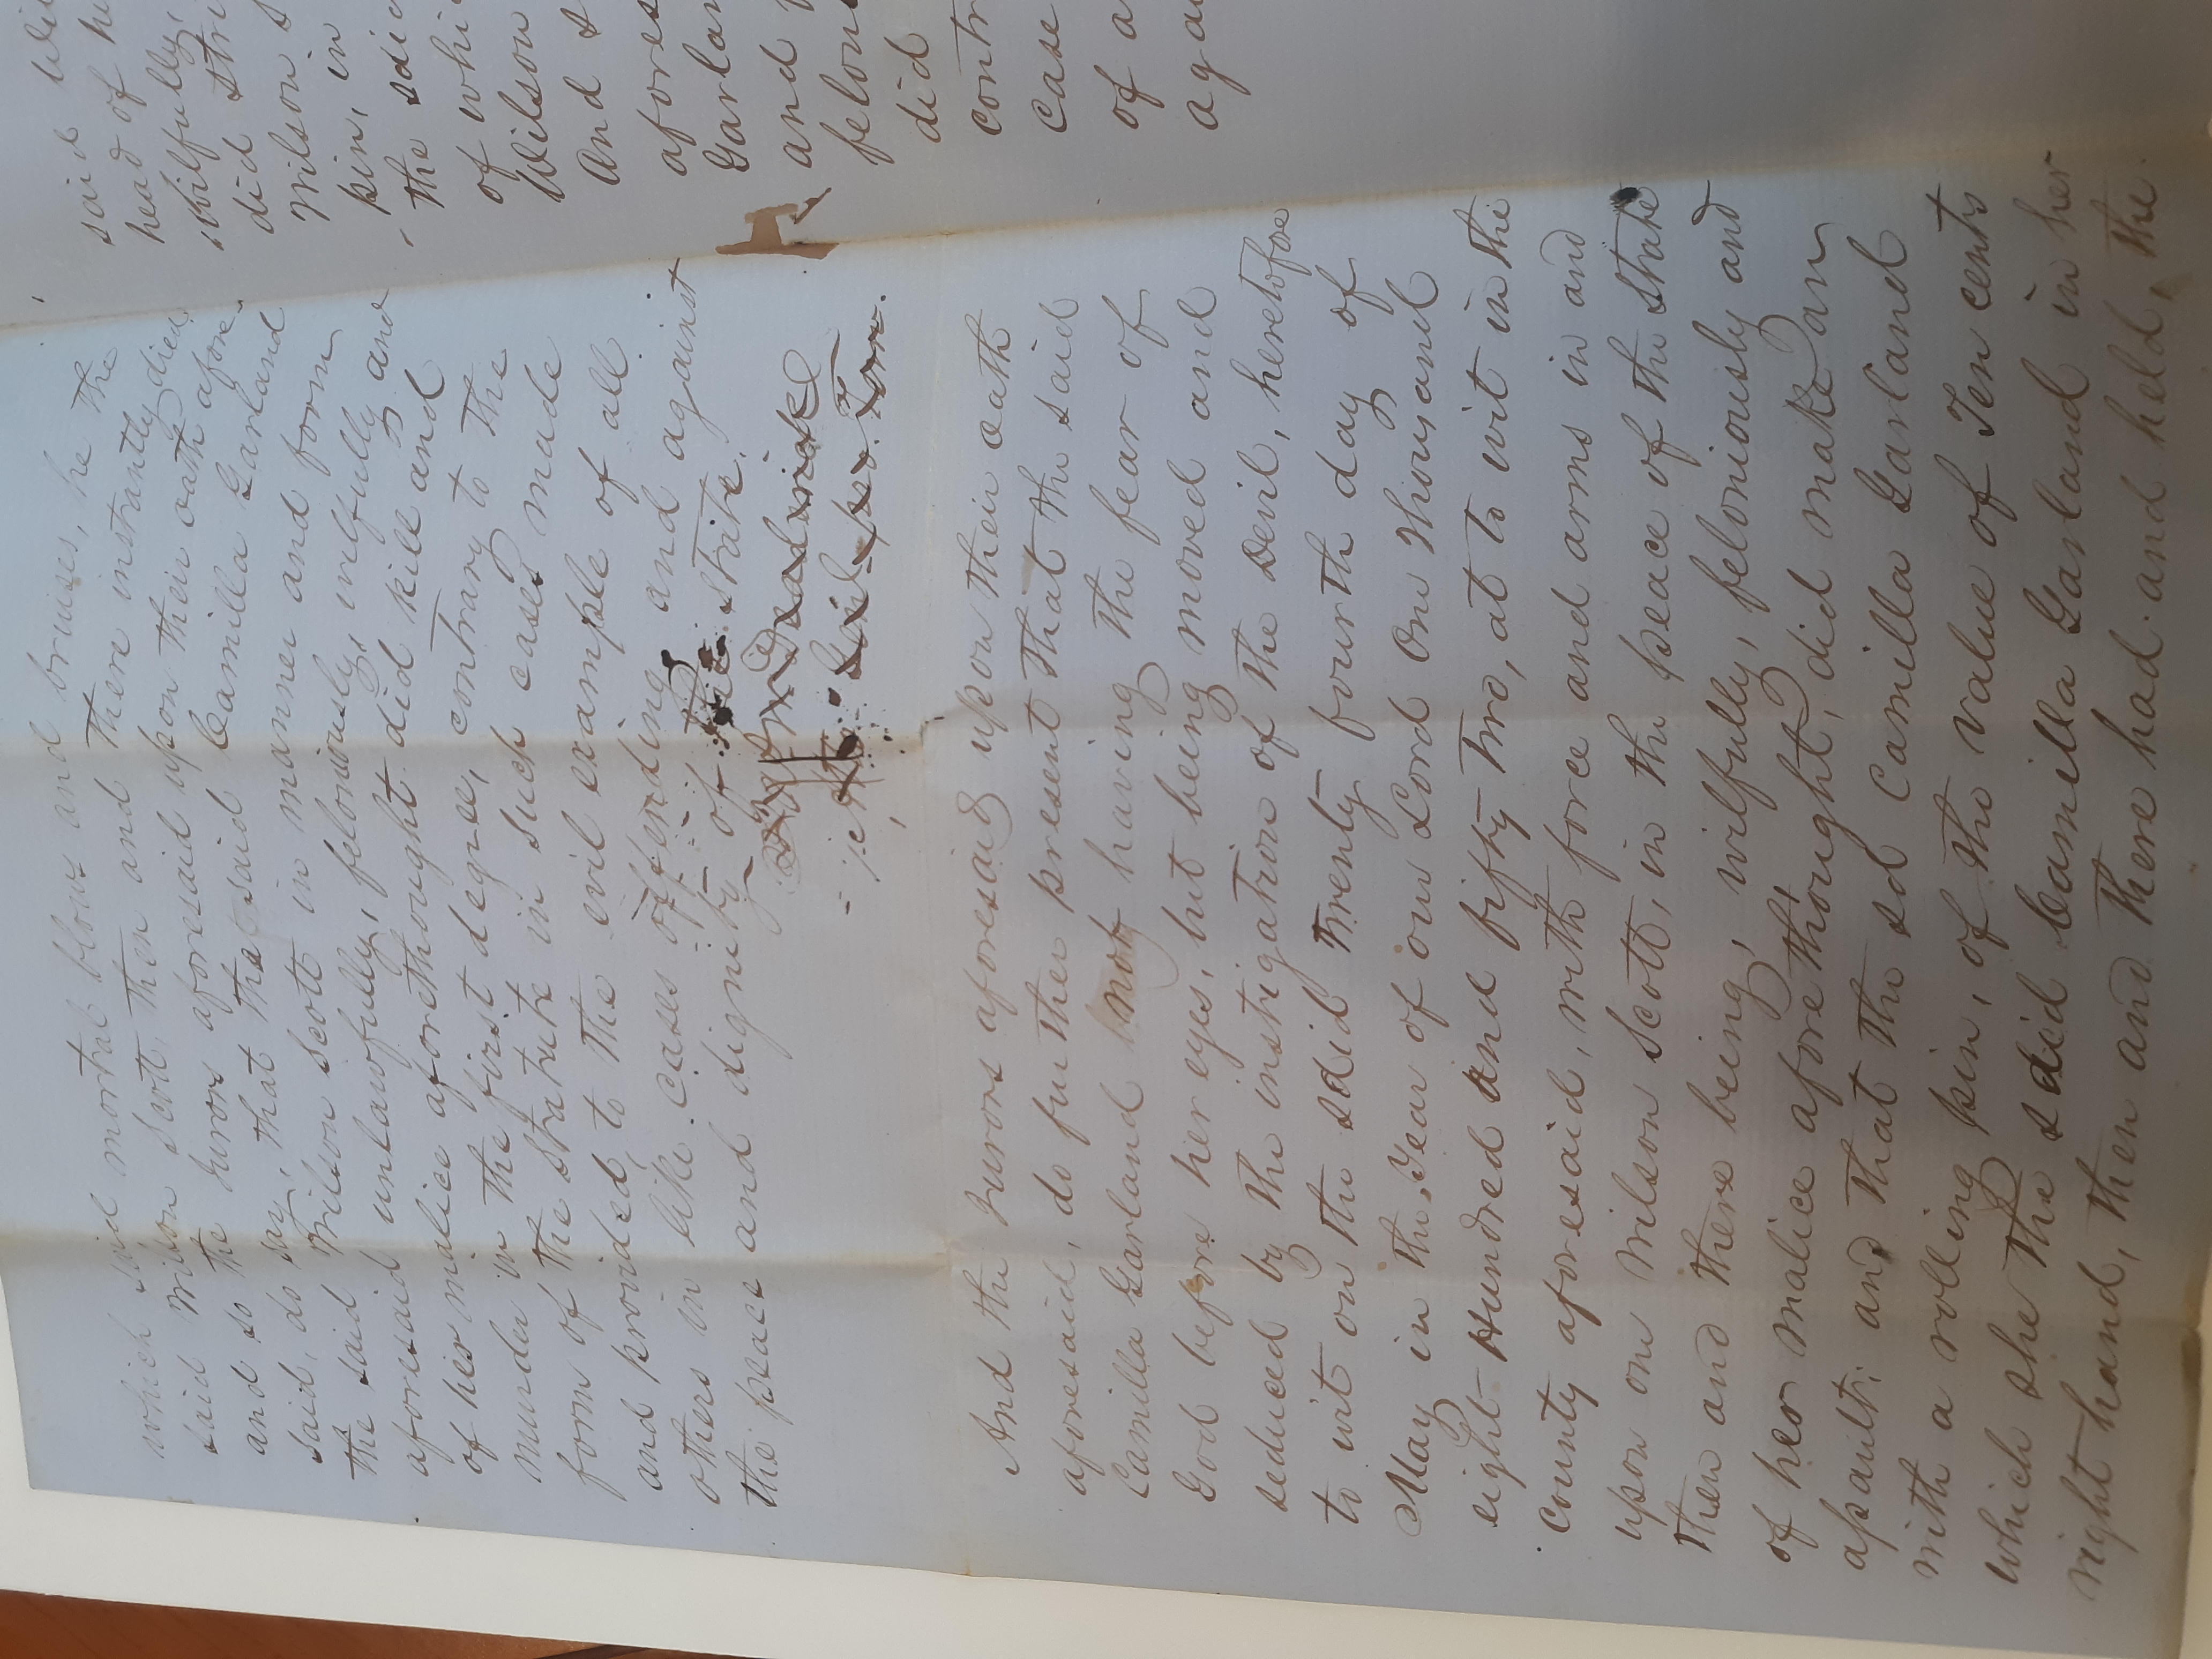 which said mortal blows and bruises, he the
said Wilson Scott, then and there instantly died.
and so the Jurors aforesaid upon their oath afore-
said, do say, that the said Camilla Garland
the said Wilson Scott in manner and form
aforesaid unlawfully, feloniously, wilfully and
of her malice aforethought did kill and
murder in the first degree, contrary to the
form of the Statute in such cases made
and provided, to the evil example of all
others in like cases offending, and against
the peace and dignity of the State.
Deaderick
Atto Genl. pro. Tem.
And the Jurors aforesaid upon their oath
aforesaid, do further present that the said
Camilla Garland not having the fear of
God before her eyes, but being moved and
seduced by the instigation of the Devil, heretofore
to wit on the said Twenty fourth day of
May in the Year of our Lord One Thousand
eight Hundred And fifty Two, at to wit in the
County aforesaid, with force and arms in and
upon one Wilson Scott, in the peace of the State
then and there being, wilfully, feloniously and
of her malice aforethought, did make an
assault; and that the sd Camilla Garland
with a rolling pin, of the value of Ten cents
which she the said Camilla Garland in her
right hand, then and there had and held, the
said
head of
wilfully,
did
Wilson
pin, in
the said
of
Wilson
And
Garlan
and
did
Case
of a